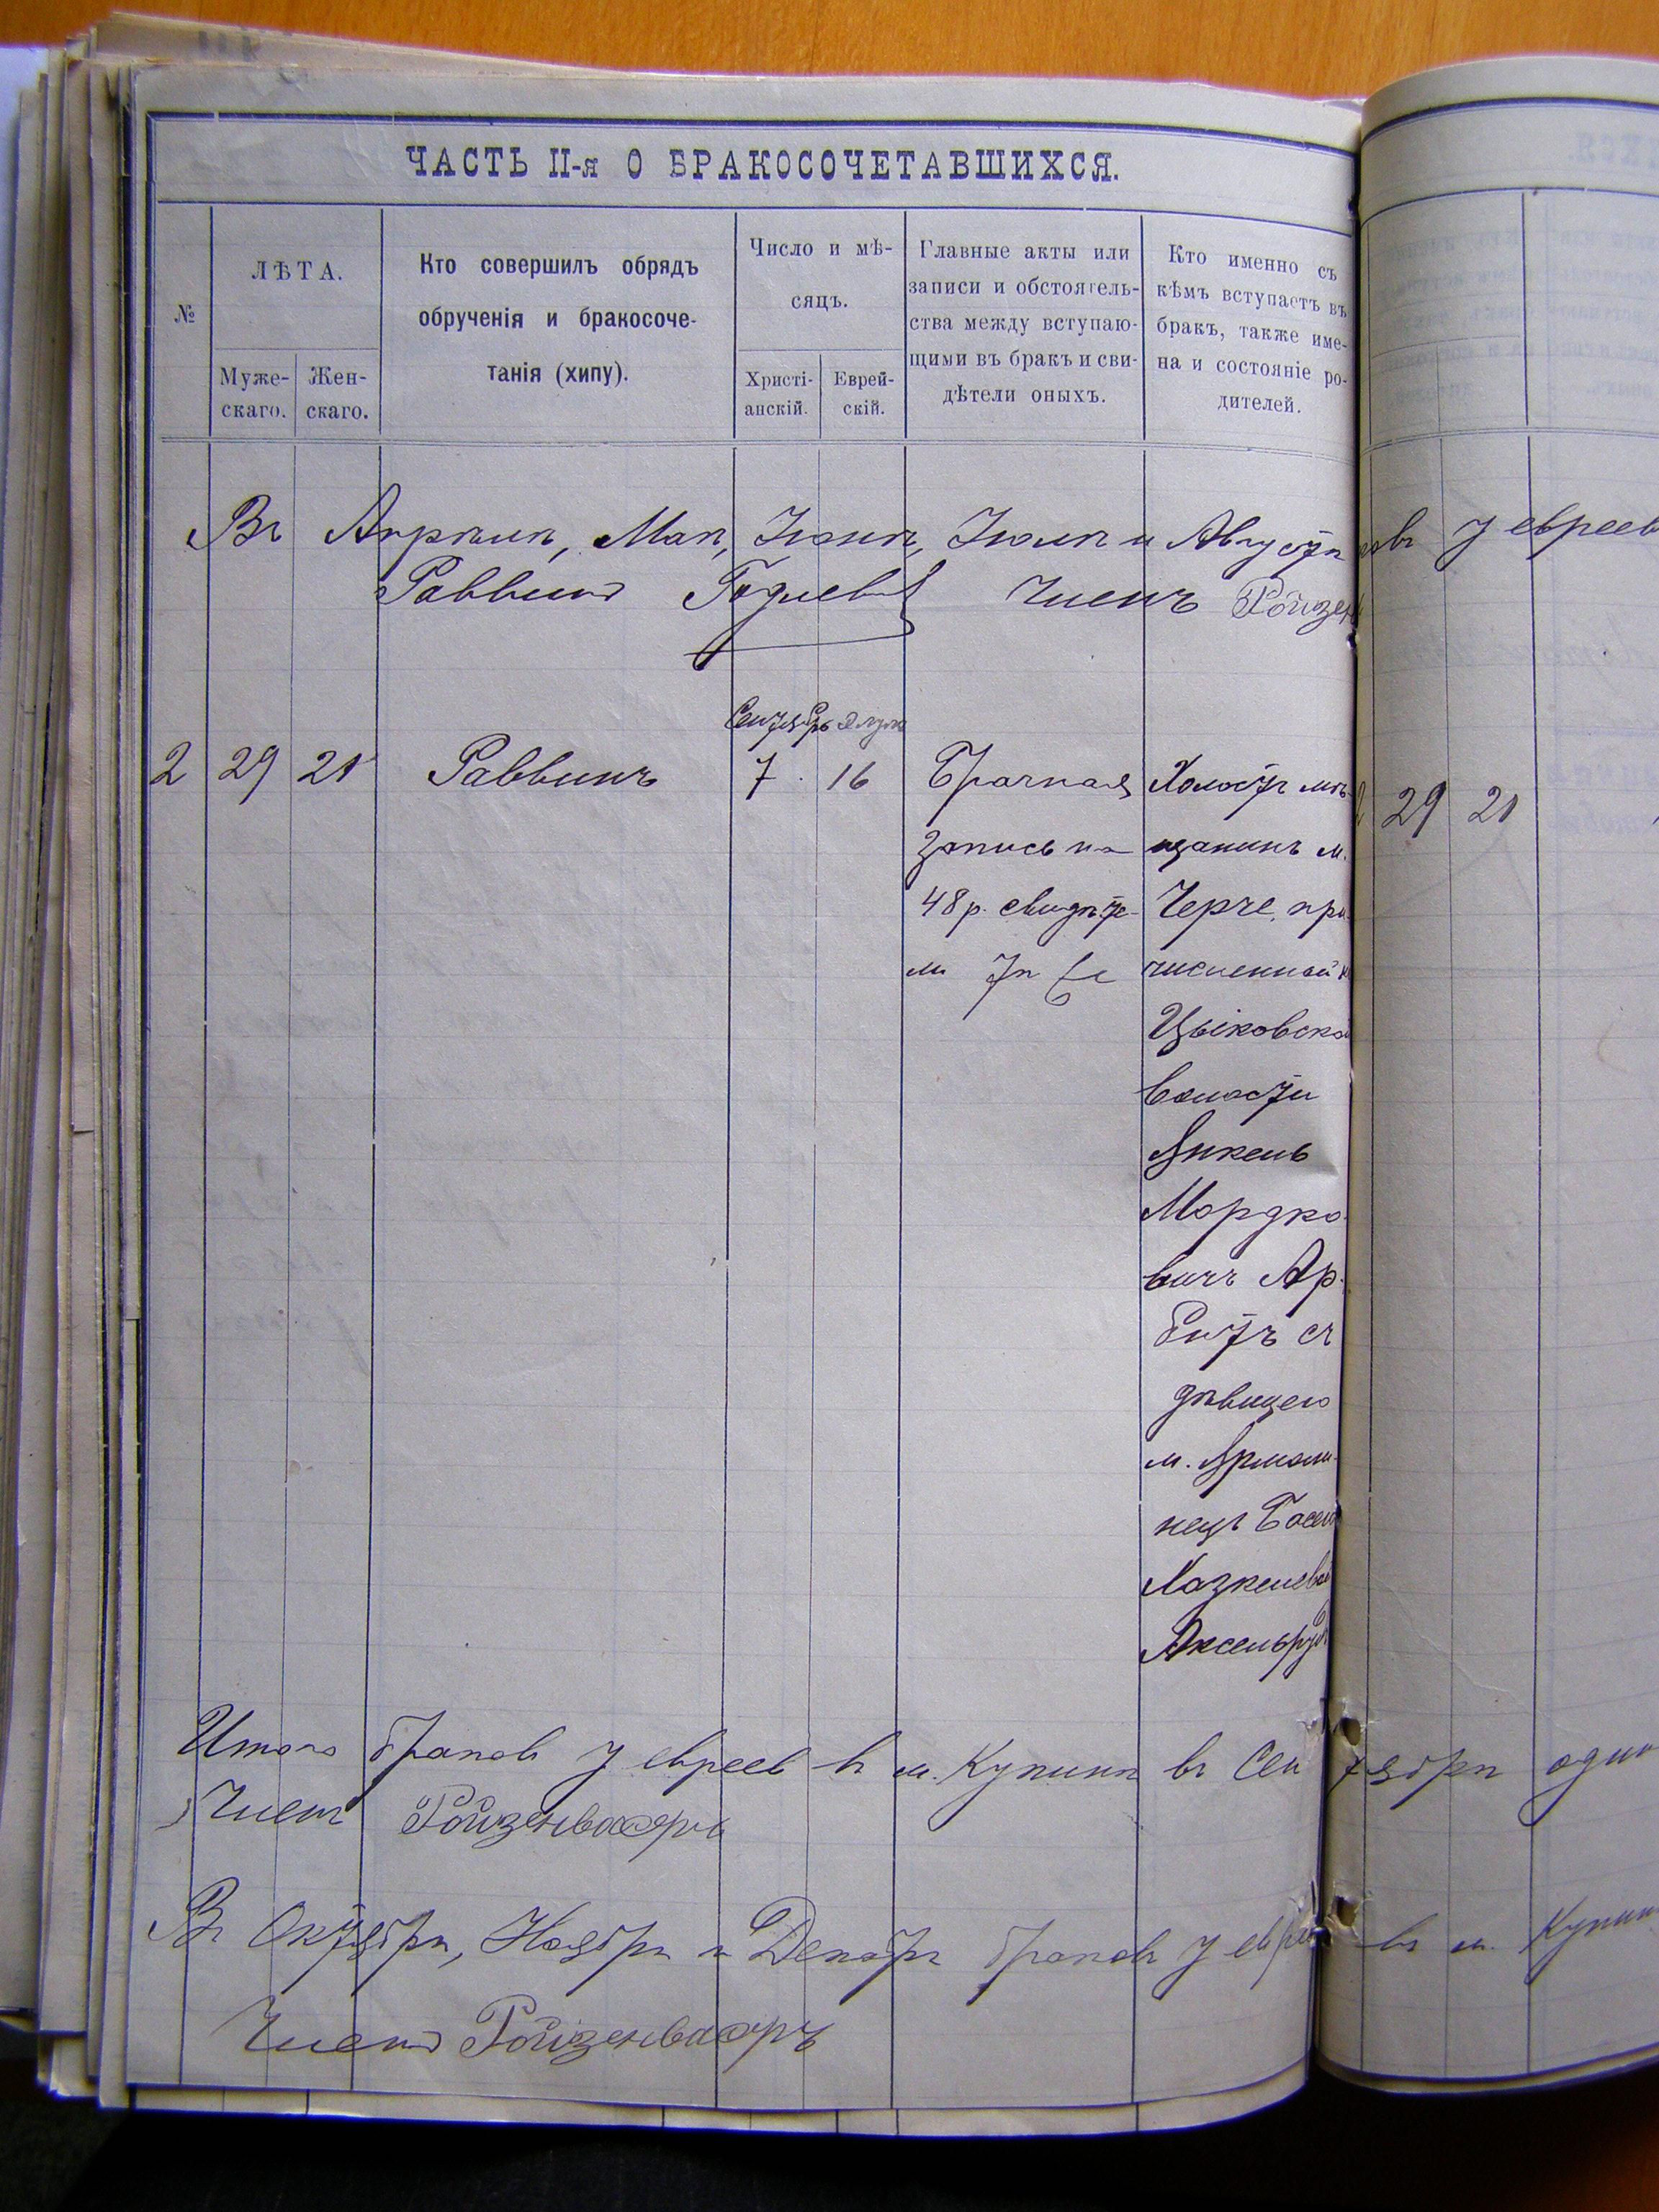 ЧАСТЬ II-я О БРАКОСОЧЕТАВШИХСЯ.
№
ЛѢТА.
Муже-
скаго.
Жен-
скаго.
Кто совершилъ обрядъ
обрученія и бракосоче-
танія (хипу).
Число и мѣ-
сяцъ.
Христі-
анскій.
Еврей-
скій.
Главные акты или
записи и обстоятель-
ства между вступаю-
щими въ бракъ и сви-
дѣтели оныхъ.
Кто именно съ
кѣмъ вступаетъ въ
бракъ, также име-
на и состояніе ро-
дителей.
Въ Апрѣлѣ, Маѣ, Іюнѣ, Іюлѣ и Августѣ
Раввинъ Членъ Ройзен
Сентябрь Элула
2 29 21 Раввинъ 7 16
Брачная
запись на
48 р. свидѣте-
ли тѣ же
Холостъ мѣ-
щанинъ м.
Черче, при
численный к
Цыковской
волости
Янкель
Мордко-
вичъ Ар-
битъ съ
дѣвицею
м. Ярмоли-
нецъ Басею
Хазкелевой
Аксельруд
Итого браковъ у евреевъ въ м. Купинѣ въ Сентябрѣ один
Членъ Ройзенваеръ
Въ Октябрѣ, Ноябрѣ и Декабрѣ браковъ у евреев въ м. Купин
Членъ Ройзенваеръ
у еврeeв
29 21